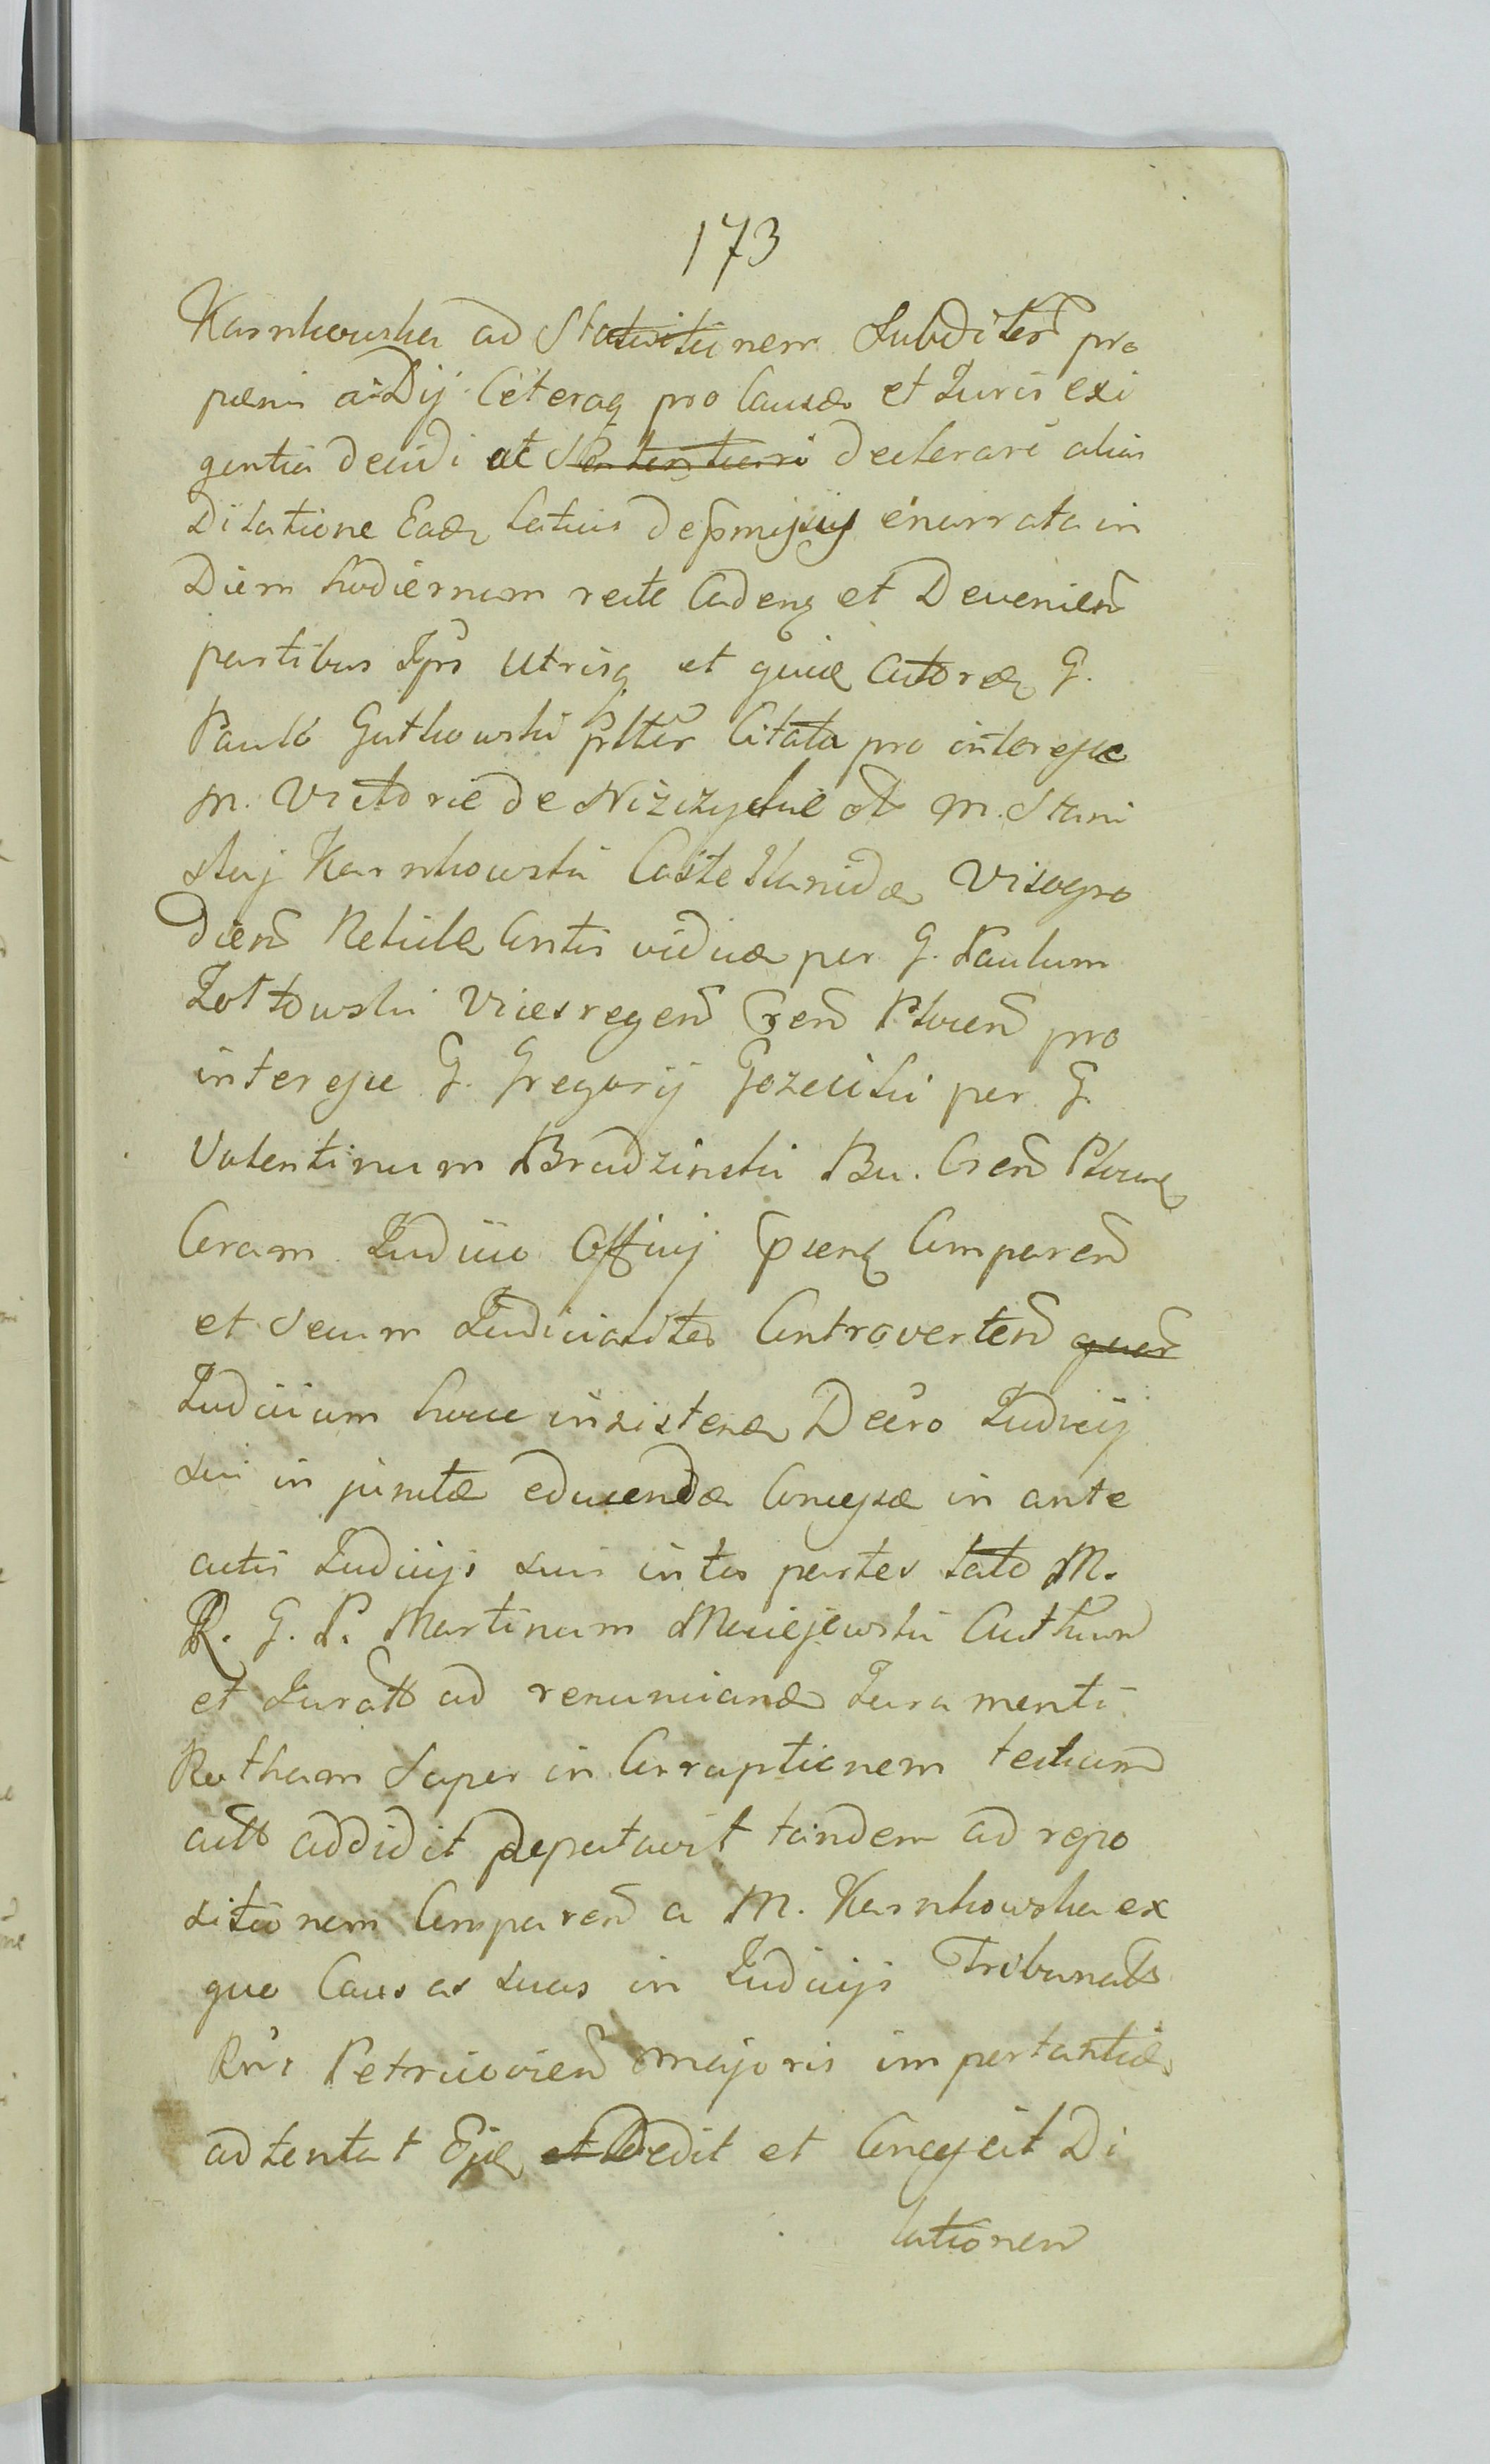 173
Karnkowska ad Statuitionem Subditor̃ pro
pænis a Dij Céteraq pro Causæ et Juris exi
gentia decidi ac Sententiari declarari alias
Dilatione Eadẽ latius de præmissis enarrata in
Diem hodiernum recte Cadenẽ et Devenien̄
partibus Ip̃is utrisq et quidẽ Actorea G.
Paulo Gutkowski pltr̃ Citata pro interesse
M. Victoriæ de Nizczyckie ol̃ M. Stani
slaj Karnkowski Castellanidæ Visogro
dien̄ Relictæ Contis viduæ per G. Paulum
Zottowski Vicesregen̄ Cren̄ Plocen̄ pro
interesse G. Gregorij Gozdicki per G.
Valentinum Brudzinski Bu. Cren̄ Plocen̄
Coram Judicio Officij p̄senẽ Comparen̄
et Secum Judicialiter Controverten̄ quor̃
Judicium hocce insistendo Decro Judicij
sui in junctæ educendæ Concessæ in ante
actis Judicijs suis inter partes lato M.
R. G. P. Martinum Maciejewski Authum
et Juratt ad renunciand Juramenti
Rotham super in Corruptionem testium
actt addidit deputavit tandem ad repo
sitionem Comparen̄ a M. Karnkowska ex
quo Causas suas in Judicijs Tribunals
Rni Petricovien̄ majoris importantiæ
adtentat Ejdẽ et Dedit et Concessit Di
lationem